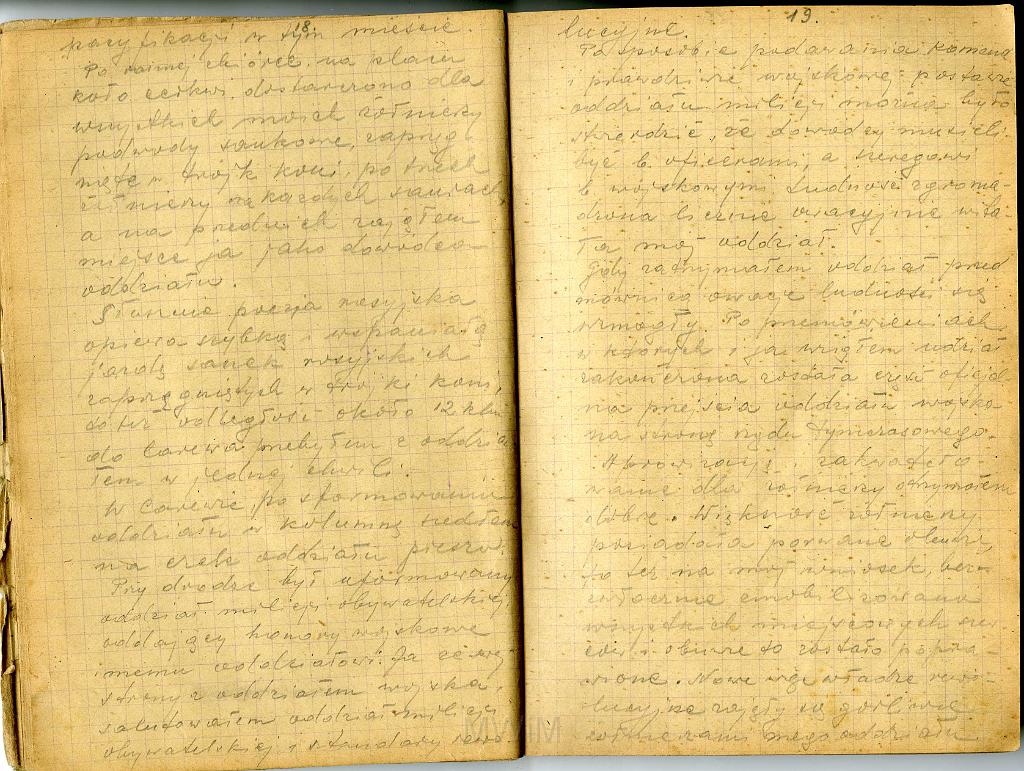 18.
pacyfikacji w tym mieście.
Po rannej zbiórce na placu
koło cerkwi dostarczono dla
wszystkich moich żołnierzy
podwody sankowe, zaprzę
nięte w trójki koni, po trzech
żołnierzy na każdych saniach,
a na przednich zająłem
miejsce ja jako dowódca
oddziału.
Słusznie poezja rosyjska
opiewa szybką i wspaniałą
jazdę sanek rosyjskich
zaprzęgniętych w trójki koni,
to też odległość około 12 klm
do Carewa przebyłem z oddzia
łem w jednej chwili.
W Carewie, po sformowaniu
oddziału w kolumnę szedłem
na czele oddziału pieszo.
Przy drodze był uformowany
oddział milicji obywatelskiej
oddający honory wojskowe
memu oddziałowi. Ja ze swej
strony z oddziałem wojska,
salutowałem oddział milicji
obywatelskiej i sztandary rewo
19.
lucyjne.
Po sposobie podawania komend
i prawdziwie wojskowej postawie
oddziału milicji można było
stwierdzić, że dowódcy musieli
być b. oficerami, a szeregowi
b. wojskowymi. Ludność zgroma-
dzona licznie owacyjnie wita-
ła mój oddział.
Gdy zatrzymałem oddział przed
mównicą owacje ludności się
wzmogły. Po przemówieniach,
w których i ja wziąłem udział
zakończona została część oficjal-
na przejścia oddziału wojska
na stronę rządu tymczasowego.
Aprowizację, zakwatero-
wanie dla żołnierzy otrzymałem
dobre. Większość żołnierzy
posiadała porwane obuwie,
to też na mój wniosek, bez-
zwłocznie zmobilizowano
wszystkich miejscowych szew
ców i obuwie to zostało popra-
wione. Nowe więc władze rewo-
lucyjne zajęły się gorliwie
żołnierzami mego oddziału
MWiM